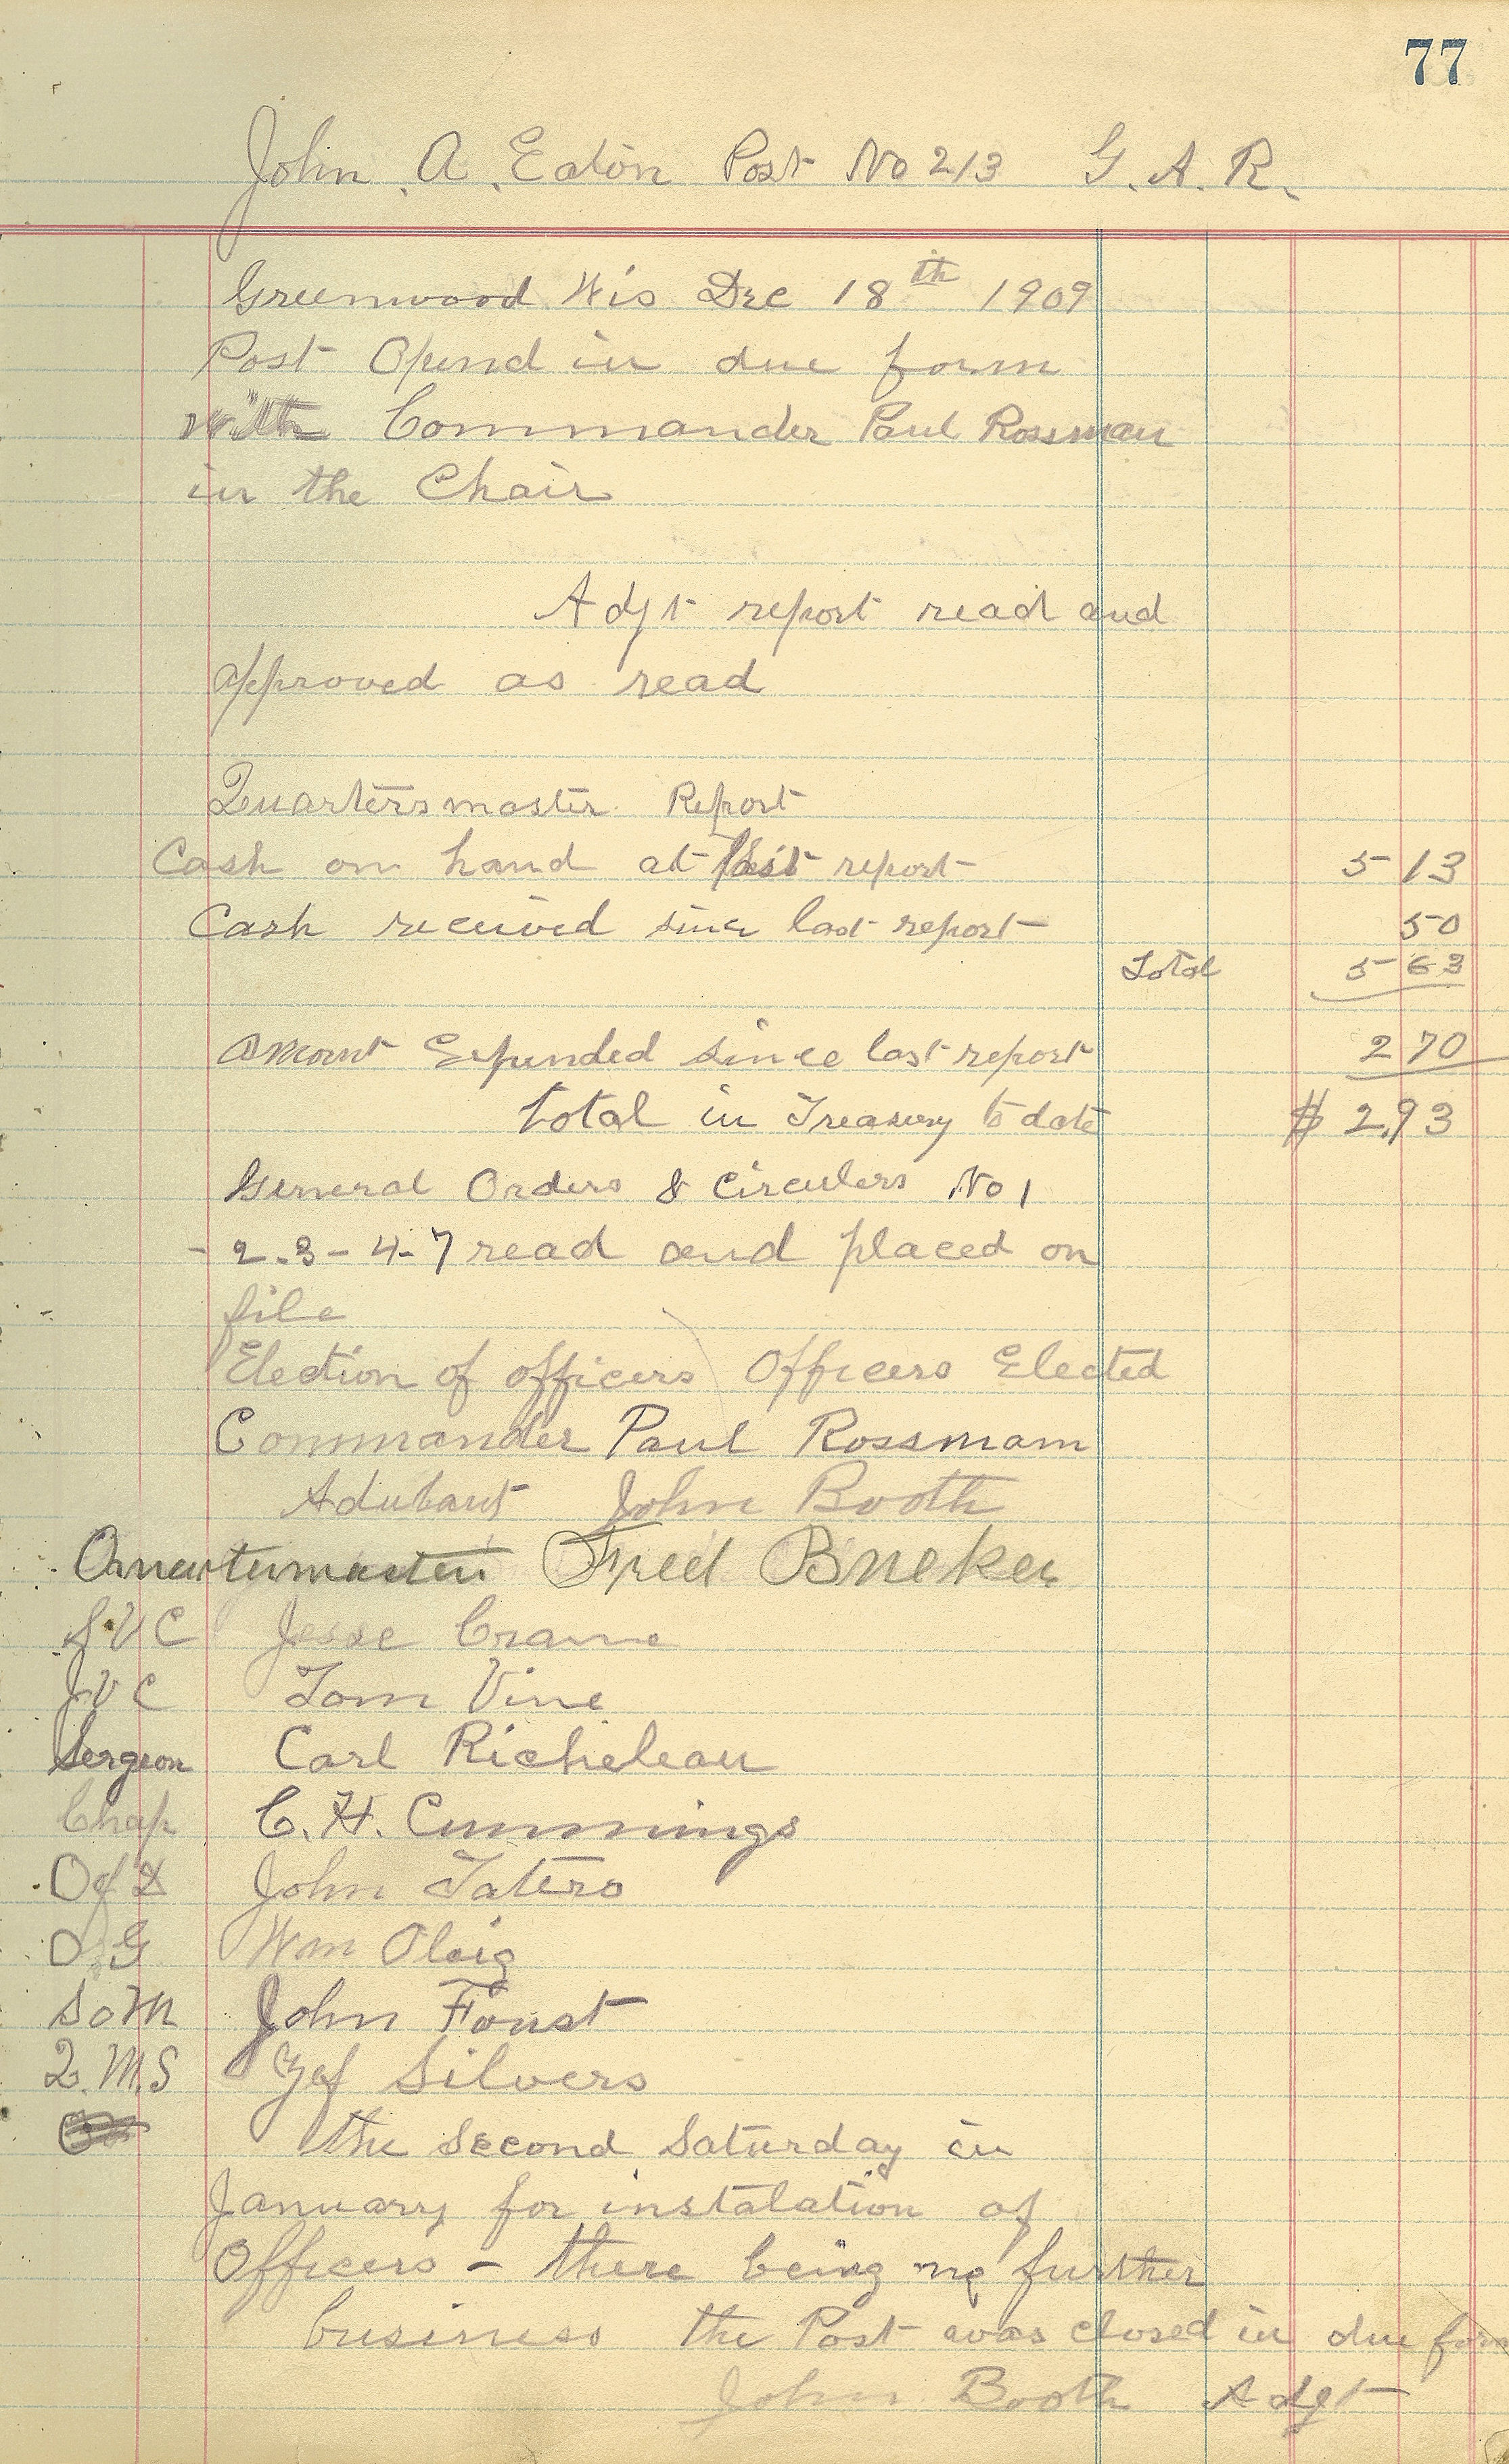 77
John A. Eaton Post No 213 G. A. R.
Greenwood Wis Dec 18th 1909
Post Opend in due form
with Commander Paul Rossman
in the Chair
Adgt report read and
approved as read
Quartersmaster Report
Cash on hand at last report 5 13
Cash received since last report 50
Total 5 63
Amount Expended since last report 2 70
total in Treasury to date $ 2.93
General Orders & Circulers No 1
- 2-3-4-7 read and placed on
file
Election of officers Officers Elected
Commander Paul Rossmam
Adutant John Booth
Fred Bneker
S V C Jesse Crame
J V C Tom Vine
Sergeon Carl Richeleau
Chap C. H. Cummings
O of D John Taters
O. G Wm Olaig
S o M John Foust
Q. M. S Zef Silvers
the Second Saturday in
January for instalation of
Officers - there being no further
business the Post was closed in due form
John Booth Adgt